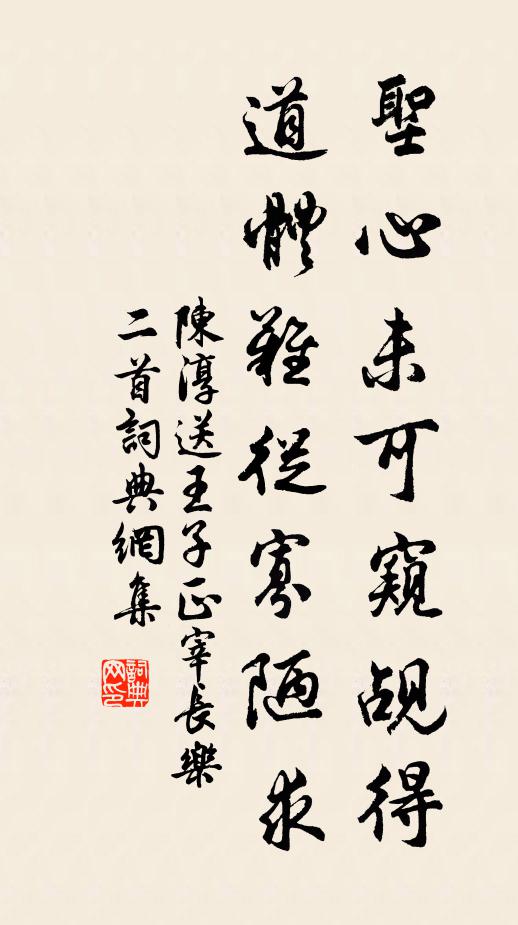 聖心未可窺覘得
道體難從寡陋求
陳淳送王子正宰長樂
二首詞典網集
詞典
网印